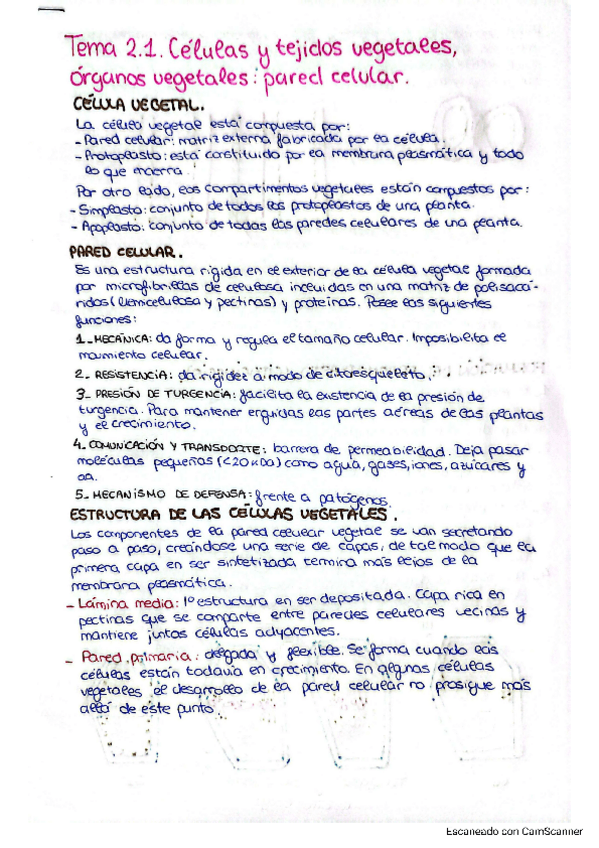 Tema 2.1. Células y tejidos vegetales,
órganos vegetales: pared celular.
CÉLULA VEGETAL.
La célula vegetal está compuesta por:
- Pared celular: matriz externa fabricada por la célula.
- Protoplasto: está constituido por la membrana plasmática y todo
lo que encierra.
Por otro lado, los compartimentos vegetales están compuestos por:
- Simplasto: conjunto de todos los protoplastos de una planta.
- Apoplasto: conjunto de todas las paredes celulares de una planta.
PARED CELULAR.
Es una estructura rígida en el exterior de la célula vegetal formada
por microfibrillas de celulosa incluidas en una matriz de polisacá-
ridos (hemicelulosa y pectinas) y proteínas. Posee las siguientes
funciones:
1- MECÁNICA: da forma y regula el tamaño celular. Imposibilita el
movimiento celular.
2- RESISTENCIA: da rigidez a modo de citoesqueleto.
3- PRESIÓN DE TURGENCIA: facilita la existencia de la presión de
turgencia. Para mantener erguidas las partes aéreas de las plantas
y el crecimiento.
4- COMUNICACIÓN Y TRANSPORTE: barrera de permeabilidad. Deja pasar
moléculas pequeñas (<20KDa) como agua, gases, iones, azúcares y
aa.
5- MECANISMO DE DEFENSA: frente a patógenos.
ESTRUCTURA DE LAS CÉLULAS VEGETALES.
Los componentes de la pared celular vegetal se van secretando
paso a paso, creándose una serie de capas, de tal modo que la
primera capa en ser sintetizada termina más lejos de la
membrana plasmática.
- Lámina media: 1º estructura en ser depositada. Capa rica en
pectinas que se comparte entre paredes celulares vecinas y
mantiene juntas células adyacentes.
- Pared primaria: delgada y flexible. Se forma cuando las
células están todavía en crecimiento. En algunas células
vegetales el desarrollo de la pared celular no prosigue más
allá de este punto.
Escaneado con CamScanner